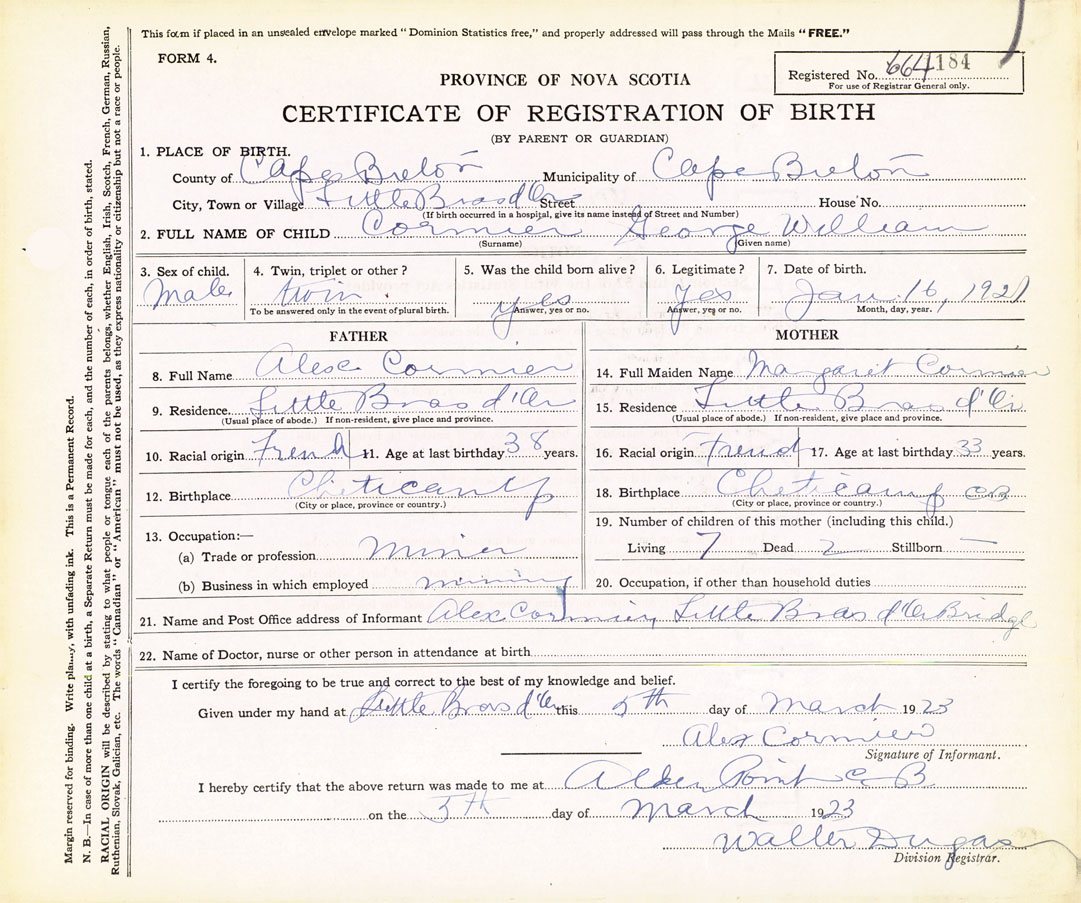 This form if placed in an unsealed envelope marked "Dominion Statistics free," and properly addressed will pass through the Mails "FREE."
FORM 4.
PROVINCE OF NOVA SCOTIA
Registered No. 664184
For use of Registrar General only.
CERTIFICATE OF REGISTRATION OF BIRTH
(BY PARENT OR GUARDIAN)
1. PLACE OF BIRTH.
County of Cape Breton Municipality of Cape Breton
City, Town or Village Little Bras d'Or Street House No.
(If birth occurred in a hospital, give its name instead of Street and Number)
2. FULL NAME OF CHILD Cormier George William
(Surname) (Given name)
3. Sex of child. Male
4. Twin, triplet or other? twin
To be answered only in the event of plural birth.
5. Was the child born alive? yes
Answer, yes or no.
6. Legitimate? yes
Answer, yes or no.
7. Date of birth. Jan. 16, 1921
Month, day, year.
FATHER
8. Full Name Alex Cormier
9. Residence Little Bras d'Or
(Usual place of abode.) If non-resident, give place and province.
10. Racial origin French 11. Age at last birthday 38 years.
12. Birthplace Cheticamp
(City or place, province or country.)
13. Occupation:—
(a) Trade or profession Miner
(b) Business in which employed mining
MOTHER
14. Full Maiden Name Margaret Cormier
15. Residence Little Bras d'Or
(Usual place of abode.) If non-resident, give place and province.
16. Racial origin French 17. Age at last birthday 33 years.
18. Birthplace Cheticamp CB
(City or place, province or country.)
19. Number of children of this mother (including this child.)
Living 7 Dead 2 Stillborn —
20. Occupation, if other than household duties
21. Name and Post Office address of Informant Alex Cormier, Little Bras d'Or Bridge
22. Name of Doctor, nurse or other person in attendance at birth
I certify the foregoing to be true and correct to the best of my knowledge and belief.
Given under my hand at Little Bras d'Or this 5th day of March 1923
Alex Cormier
Signature of Informant.
I hereby certify that the above return was made to me at Alder Point C B
on the 5th day of March 1923
Walter Dugas
Division Registrar.
Margin reserved for binding. Write plainly, with unfading ink. This is a Permanent Record.
N. B.—In case of more than one child at a birth, a Separate Return must be made for each, and the number of each, in order of birth, stated.
RACIAL ORIGIN will be described by stating to what people or tongue each of the parents belongs, whether English, Irish, Scotch, French, German, Russian,
Ruthenian, Slovak, Galician, etc. The words "Canadian" or "American" must not be used, as they express nationality or citizenship but not a race or people.